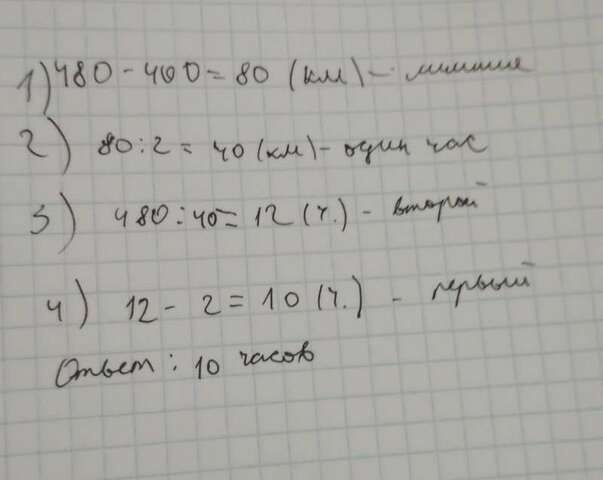 1) 480 - 400 = 80 (км) - лишние
2) 80 : 2 = 40 (км) - один час
3) 480 : 40 = 12 (ч.) - второй
4) 12 - 2 = 10 (ч.) - первый
Ответ : 10 часов